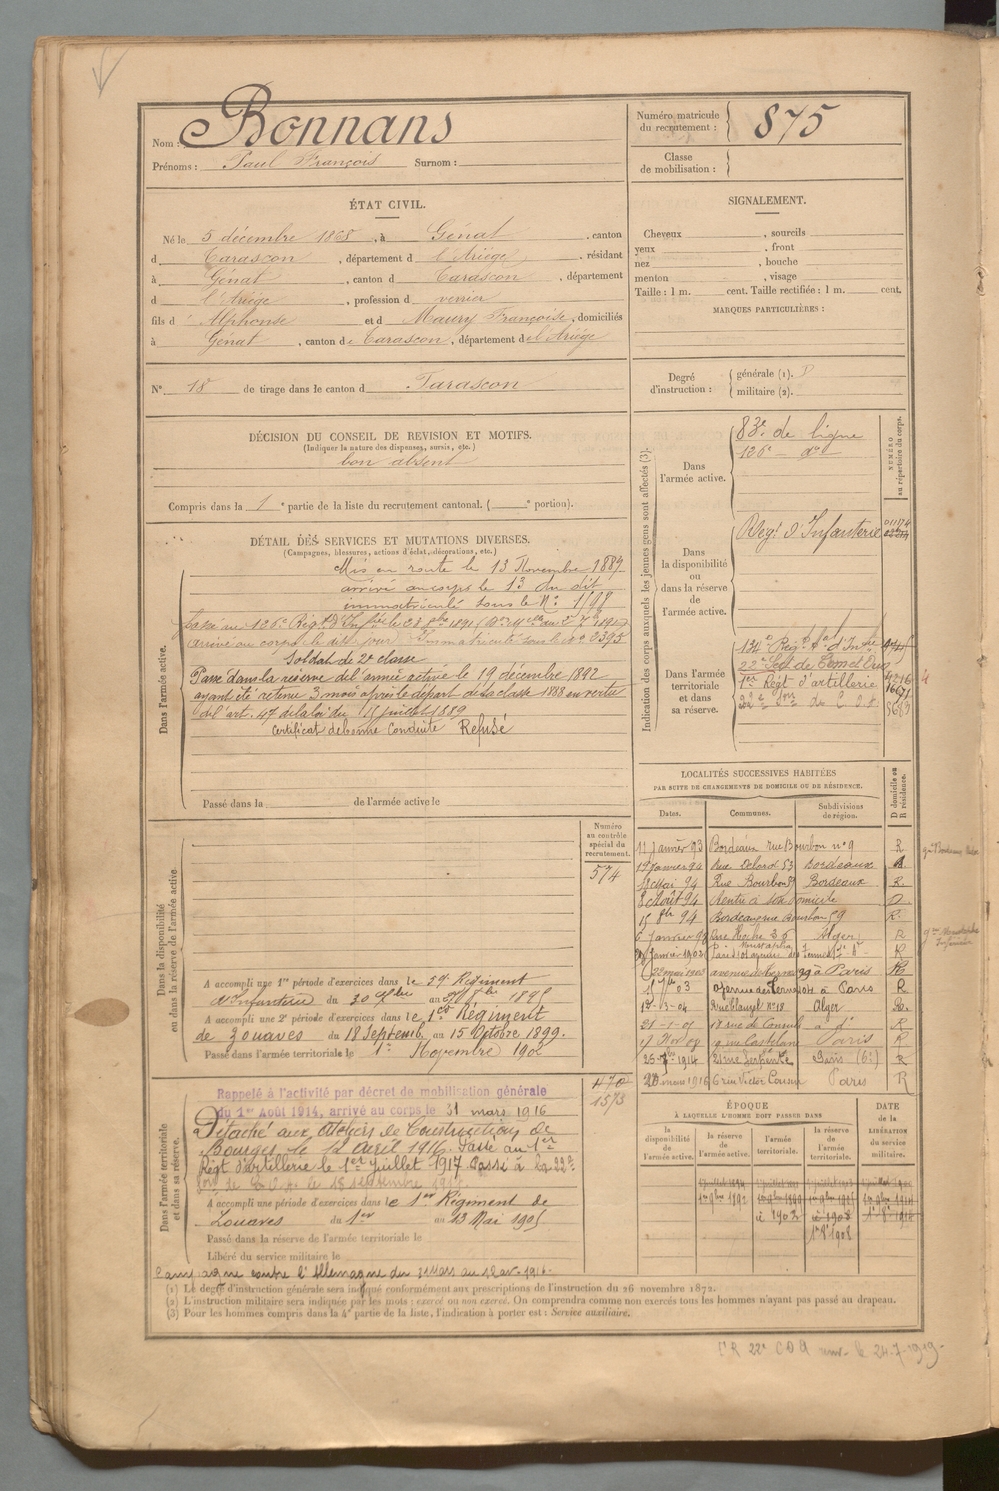 Nom : Bonnans
Prénoms : Paul François Surnom :
Numéro matricule du recrutement : 875
Classe de mobilisation :
ÉTAT CIVIL.
Né le 5 décembre 1868, à Génat, canton
d Tarascon, département d l'Ariège, résidant
à Génat, canton d Tarascon, département
d l'Ariège, profession d verrier
fils d' Alphonse et d Maury Françoise, domiciliés
à Génat, canton de Tarascon, département de l'Ariège
N° 18 de tirage dans le canton d Tarascon
SIGNALEMENT.
Cheveux , sourcils
yeux , front
nez , bouche
menton , visage
Taille : 1 m. cent. Taille rectifiée : 1 m. cent.
MARQUES PARTICULIÈRES :
Degré d'instruction : générale (1). D
militaire (2).
DÉCISION DU CONSEIL DE REVISION ET MOTIFS.
(Indiquer la nature des dispenses, sursis, etc.)
bon absent
Compris dans la 1e partie de la liste du recrutement cantonal. ( e portion).
DÉTAIL DES SERVICES ET MUTATIONS DIVERSES.
(Campagnes, blessures, actions d'éclat, décorations, etc.)
Dans l'armée active.
Mis en route le 13 Novembre 1889
arrivé au corps le 13 du dit
immatriculé sous le N°
Passé au 126e Régt d'Infrie le 28 8bre 1891
arrivé au corps le dit jour Immatriculé sous le n° 2395
Soldat de 2e classe
Passé dans la réserve de l'armée active le 19 décembre 1892
ayant été retenu 3 mois après le départ de la classe 1888 en vertu
de l'art. 47 de la loi du 15 juillet 1889
Certificat de bonne Conduite Refusé
Passé dans la de l'armée active le
Indication des corps auxquels les jeunes gens sont affectés (3).
NUMÉRO au répertoire du corps.
Dans l'armée active.
83e de ligne
126e - do
Dans la disponibilité ou dans la réserve de l'armée active.
Régt d'Infanterie 01174
Dans l'armée territoriale et dans sa réserve.
134e Régt tal d'Infrie
22e Son de Com et Ouv 4216
1er Régt d'artillerie 16671
22e Son de C.O.A. 5683
LOCALITÉS SUCCESSIVES HABITÉES
PAR SUITE DE CHANGEMENTS DE DOMICILE OU DE RÉSIDENCE.
D domicile ou R résidence.
Dates. Communes. Subdivisions de région.
11 janvier 93 Bordeaux rue Bourbon n° 9 R
19 janvier 94 Rue Delord 53 Bordeaux R
18 Mai 94 Rue Bourbon 59 Bordeaux R.
8 Août 94 Rentre à son domicile D
15 8bre 94 Bordeaux rue Bourbon 59 R.
6 janvier 99 Rue Hoche 36 Alger R
Mustapha
Janvier 1902 R
22 mai 1903 avenue des Ternes 29 à Paris R
1 7bre 03 avenue des Ternes à Paris R
12-3-04 Rue Clauzel n° 18 Alger R.
21-1-05 18 rue de Consul à do R
Nov 07 9 rue Castelane Paris R
25-7bre 1914 21 rue Serpente Paris (6e) R
28 mars 1916 6 rue Victor Cousin Paris R
Dans la disponibilité ou dans la réserve de l'armée active.
Numéro au contrôle spécial du recrutement.
574
A accompli une 1re période d'exercices dans le 29e Régiment
d'Infanterie du 30 7bre au 27 8bre 1895
A accompli une 2e période d'exercices dans le 1er Régiment
de Zouaves du 18 Septemb. au 15 Octobre 1899.
Passé dans l'armée territoriale le 1er Novembre 1902
Dans l'armée territoriale et dans sa réserve.
470
1573
Rappelé à l'activité par décret de mobilisation générale
du 1er Août 1914, arrivé au corps le 31 mars 1916
Détaché aux Ateliers de Construction de
Bourges le 12 Avril 1916. Passé au 1er
Régt d'artillerie le 1er juillet 1917 Passé à la 22e
Son de C.O.A. le 18 septembre 1917.
A accompli une période d'exercices dans le 1er Régiment de
Zouaves du 1er au 13 Mai 1905
Passé dans la réserve de l'armée territoriale le
Libéré du service militaire le
Campagne contre l'Allemagne du 31 Mars au 12 avr. 1916.
ÉPOQUE
À LAQUELLE L'HOMME DOIT PASSER DANS
DATE de la LIBÉRATION du service militaire.
la disponibilité de l'armée active.
la réserve de l'armée active.
l'armée territoriale.
la réserve de l'armée territoriale.
1er 9bre 1892 1er 9bre 1899 1er 9bre 1905 1er 9bre 1914
1902 1908
1er 8 1908
(1) Le degré d'instruction générale sera indiqué conformément aux prescriptions de l'instruction du 26 novembre 1872.
(2) L'instruction militaire sera indiquée par les mots : exercé ou non exercé. On comprendra comme non exercés tous les hommes n'ayant pas passé au drapeau.
(3) Pour les hommes compris dans la 4e partie de la liste, l'indication à porter est : Service auxiliaire.
22e COA le 24-7-1919